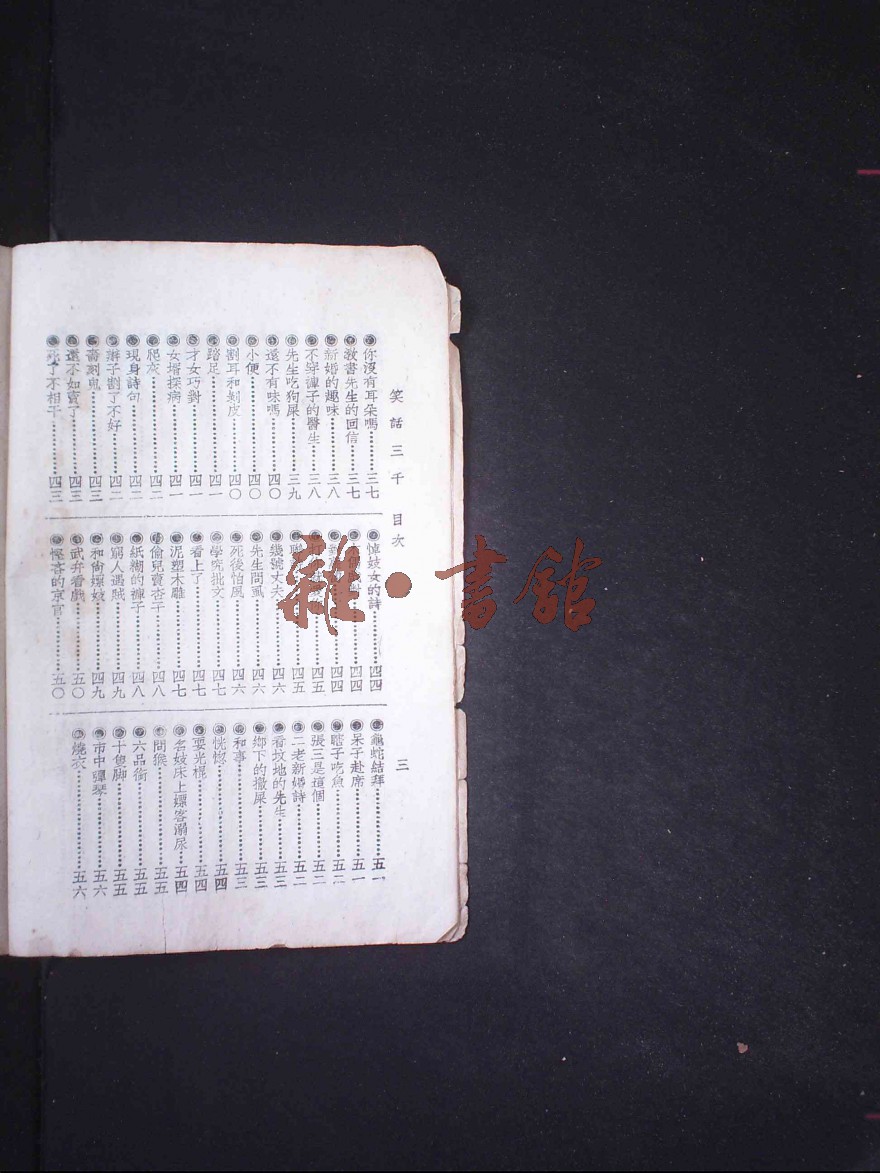 笑話三千 目次
三
你沒有耳朵嗎…………三七
教書先生的回信…………三七
新婚的趣味…………三八
不穿褲子的醫生…………三八
先生吃狗屎…………三九
還不有味嗎…………四〇
小便…………四〇
割耳和剝皮…………四〇
踏足…………四一
才女巧對…………四一
女壻探病…………四一
爬灰…………四二
現身詩句…………四二
辮子割了不好…………四二
嗇刻鬼…………四三
還不如賣了…………四三
死了不相干…………四三
悼妓女的詩…………四四
四四
四四
四五
四五
幾號丈夫…………四六
先生問虱…………四六
死後怕風…………四六
學院批文…………四七
看上了…………四七
泥塑木雕…………四七
偷兒賣杏子…………四八
紙糊的褲子…………四八
窮人遇賊…………四九
和尙嫖妓…………四九
武弁看戲…………五〇
慳吝的京官…………五〇
龜蛇結拜…………五一
呆子赴席…………五一
瞎子吃魚…………五二
張三是這個…………五二
二老新婚詩…………五二
看坟地的先生…………五三
鄉下的撒屎…………五三
和事…………五三
恍惚…………五四
耍光棍…………五四
名妓床上嫖客溺尿…………五四
問猴…………五五
六品銜…………五五
十隻脚…………五五
市中彈琴…………五六
燒衣…………五六
雜·書舘